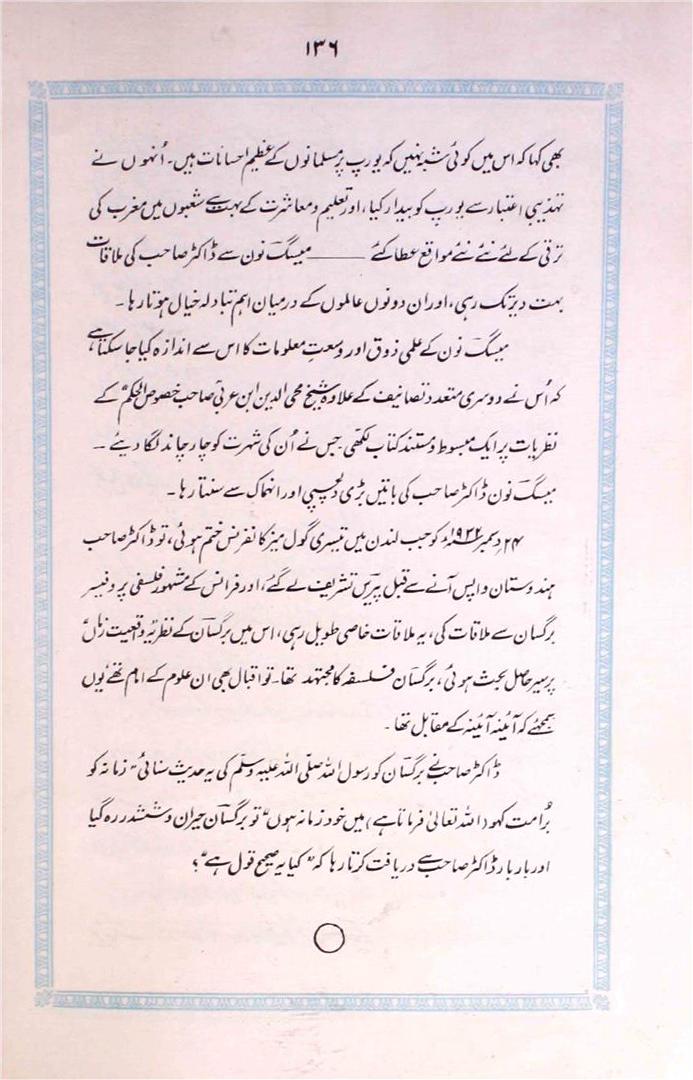 ۱۳۶
بھی کہا کہ اس میں کوئی شبہ نہیں کہ یورپ پر مسلمانوں کے عظیم احسانات ہیں۔ اُنھوں نے
تہذیبی اعتبار سے یورپ کو بیدار کیا، اور تعلیم و معاشرت کے بہت سے شعبوں میں مغرب کی
ترقی کے لئے نئے نئے مواقع عطا کئے ——— میسگ نون سے ڈاکٹر صاحب کی ملاقات
بہت دیر تک رہی، اور ان دونوں عالموں کے درمیان اہم تبادلہ خیال ہوتا رہا۔
میسگ نون کے علمی ذوق اور وسعتِ معلومات کا اس سے اندازہ کیا جا سکتا ہے
کہ اُس نے دوسری متعدد تصانیف کے علاوہ شیخ محی الدین ابن عربی صاحب خصوص الحکم" کے
نظریات پر ایک مبسوط و مستند کتاب لکھی جس نے اُن کی شہرت کو چار چاند لگا دیئے ۔
میسگ نون ڈاکٹر صاحب کی باتیں بڑی دلچسپی اور انہماک سے سنتا رہا۔
۲۴ دسمبر ۱۹۳۲ء کو جب لندن میں تیسری گول میز کانفرنس ختم ہوئی، تو ڈاکٹر صاحب
ہندوستان واپس آنے سے قبل پیرس تشریف لے گئے، اور فرانس کے مشہور فلسفی پروفیسر
برگساں سے ملاقات کی، یہ ملاقات خاصی طویل رہی، اس میں برگساں کے نظریۂ واقعیت زماں"
پر سیر حاصل بحث ہوئی، برگساں فلسفہ کا مجتہد تھا۔ تو اقبال بھی ان علوم کے امام تھے یوں
سمجھئے کہ آئینہ آئینہ کے مقابل تھا۔
ڈاکٹر صاحب نے برگساں کو رسول اللہ صلی اللہ علیہ وسلم کی یہ حدیث سنائی "زمانہ کو
بُرا مت کہو (اللہ تعالیٰ فرماتا ہے) میں خود زمانہ ہوں" تو برگساں حیران و ششدر رہ گیا
اور بار بار ڈاکٹر صاحب سے دریافت کرتا رہا کہ "کیا یہ صحیح قول ہے"؟